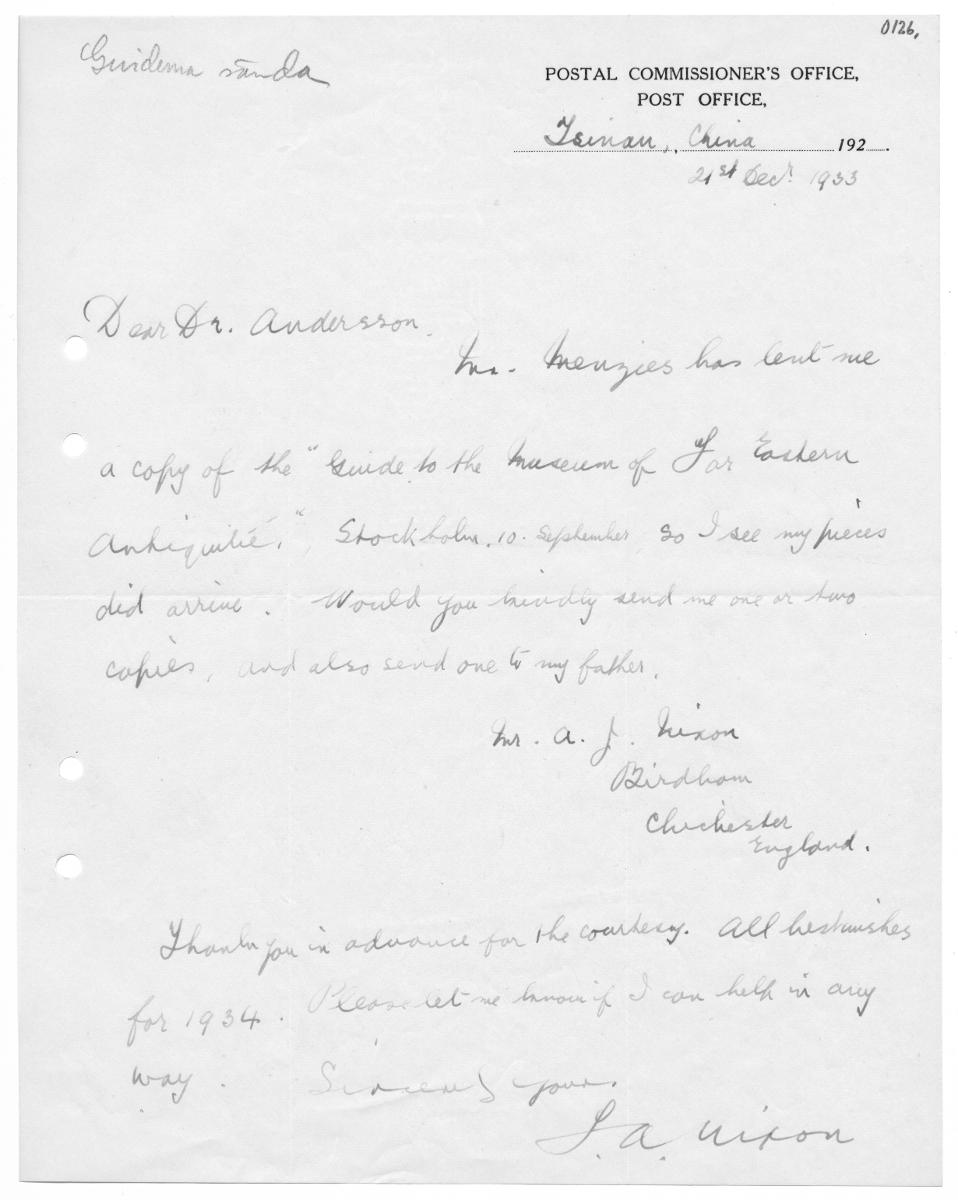 0126,
Guiderna sända
POSTAL COMMISSIONER'S OFFICE,
POST OFFICE,
Tsinan, China 192
21st Decr. 1933
Dear Dr. Andersson.
Mr. Menzies has lent me
a copy of the "Guide to the Museum of Far Eastern
Antiquitié.", Stockholm. 10. September, so I see my pieces
did arrive. Would you kindly send me one or two
copies, and also send one to my father.
Mr. A. J. Nixon
Birdham
Chichester
England.
Thank you in advance for the courtesy. All best wishes
for 1934. Please let me know if I can help in any
way. Sincerely yours.
F. A. Nixon